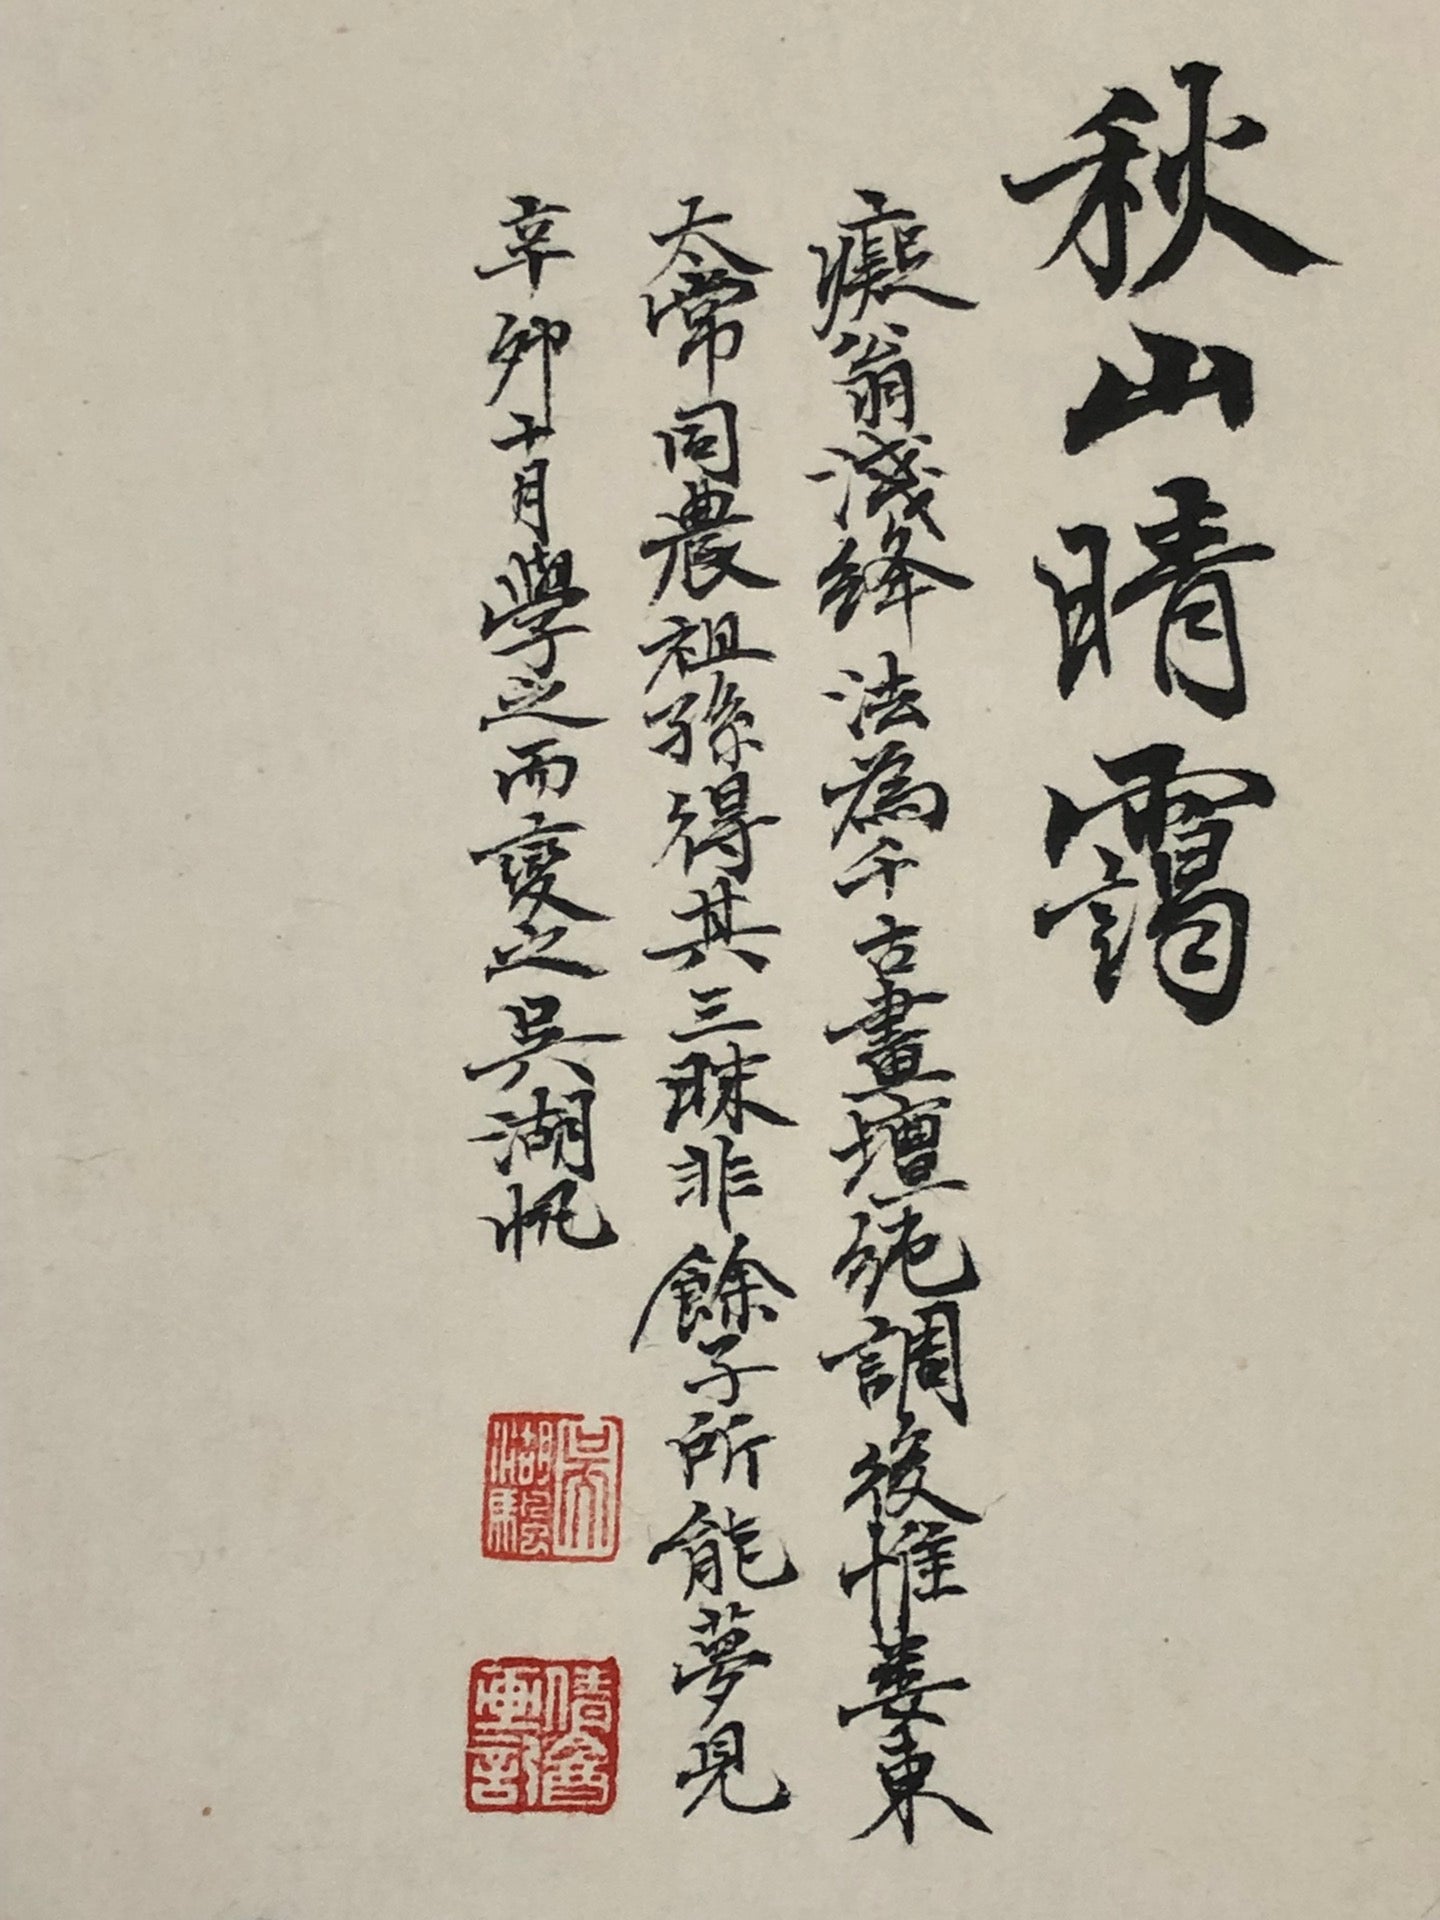 秋山晴靄
癡翁淺絳法為千古畫壇絶調後惟婁東
太常同農祖孫得其三昧非餘子所能夢見
辛卯十月學之而變之吳湖帆
吳湖騪
倩盦畫記